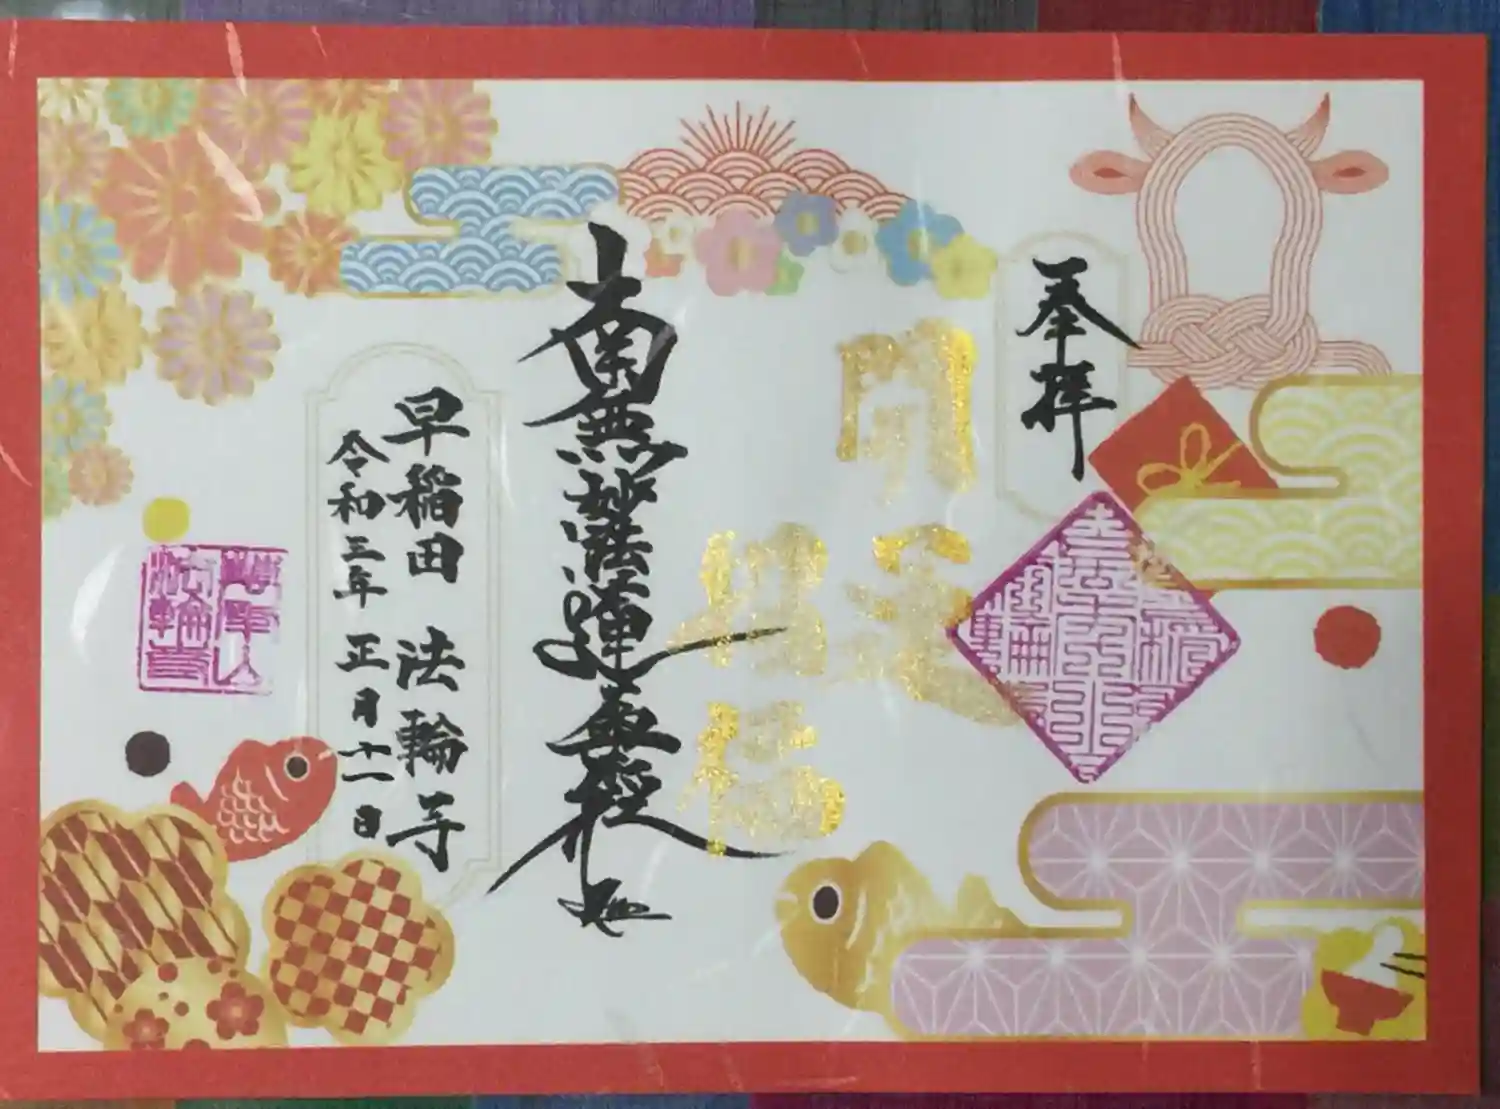 奉拝
開運
招福
南無妙法蓮華経
早稲田 法輪寺
令和三年 正月十一日